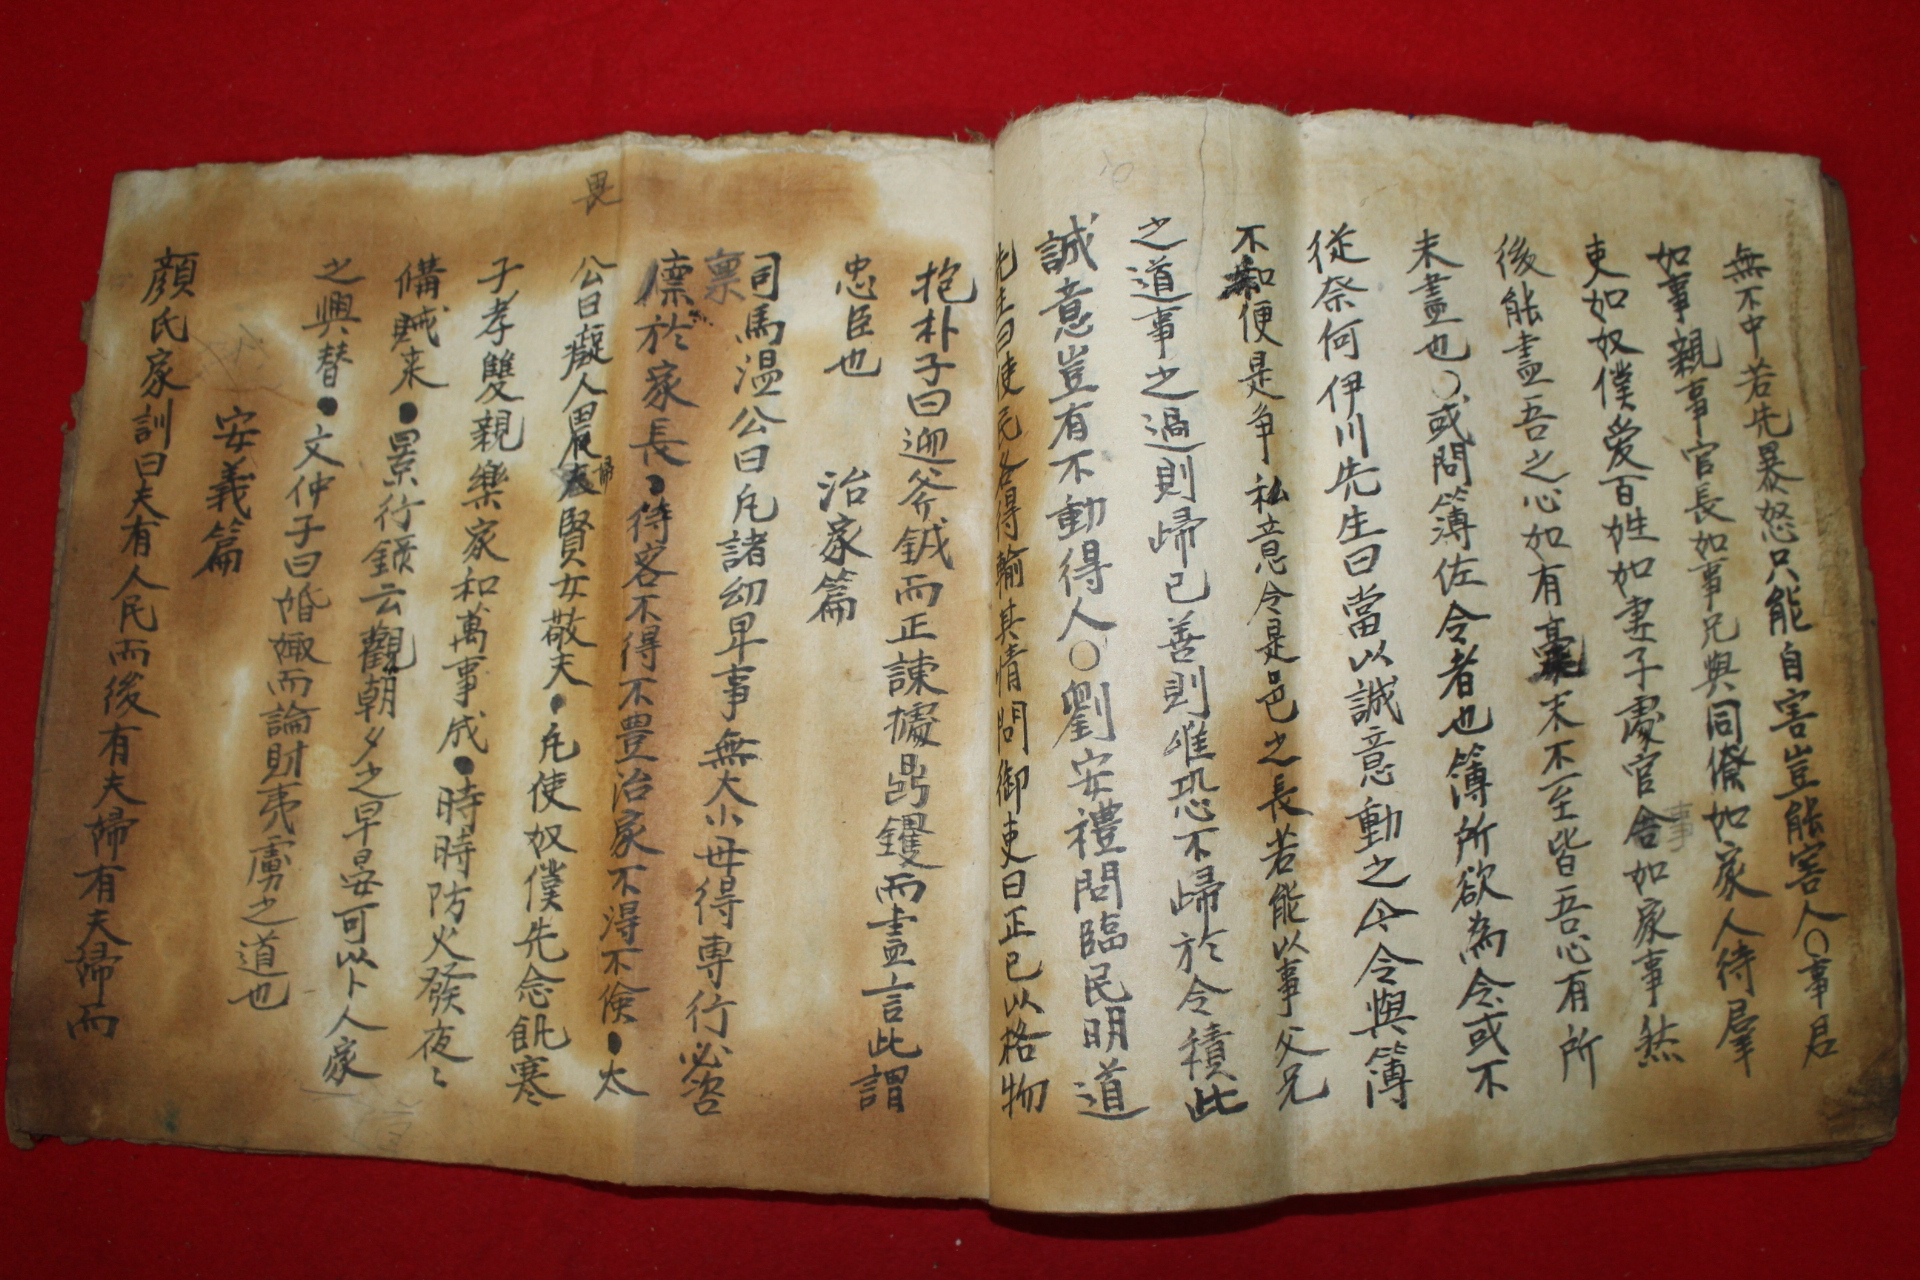 無不中若先暴怒只能自害豈能害人〇事君
如事親事官長如事兄與同僚如家人待羣
吏如奴僕愛百姓如妻子處官舍如家事然
事
後能盡吾之心如有毫末不至皆吾心有所
未盡也〇或問簿佐令者也簿所欲為令或不
從奈何伊川先生曰當以誠意動之今令與簿
不和便是争私意令是邑之長若能以事父兄
之道事之過則歸己善則唯恐不歸於令積此
誠意豈有不動得人〇劉安禮問臨民明道
先生曰使民各得輸其情問御吏曰正己以格物
抱朴子曰迎斧鉞而正諫據鼎鑊而盡言此謂
忠臣也
治家篇
司馬温公曰凡諸幼卑事無大小毋得専行必咨
稟
禀於家長●待客不得不豊治家不得不儉●太
畏
公曰癡人畏婦賢女敬夫●凡使奴僕先念飢寒
子孝雙親樂家和萬事成●時時防火發夜〻
備賊来●景行錄云觀朝夕之早晏可以卜人家
之興替●文仲子曰婚娵而論財夷虜之道也
安義篇
顔氏家訓曰夫有人民而後有夫婦有夫婦而